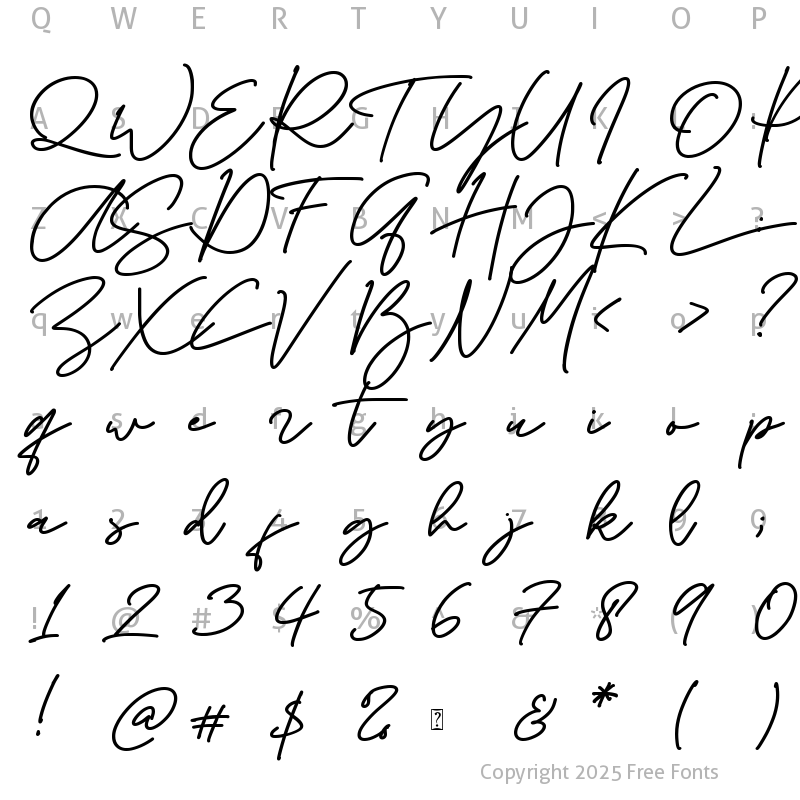 Q W E R T Y U I O P
Q W E R T Y U I O P
A S D F G H J K L :
A S D F G H J K L
Z X C V B N M < > ?
Z X C V B N M < > ?
q w e r t y u i o p
q w e r t y u i o p
a s d f g h j k l ;
a s d f g h j k l ;
1 2 3 4 5 6 7 8 9 0
1 2 3 4 5 6 7 8 9 0
! @ # $ % ^ & * ( )
! @ # $ % & * ( )
Copyright 2025 Free Fonts